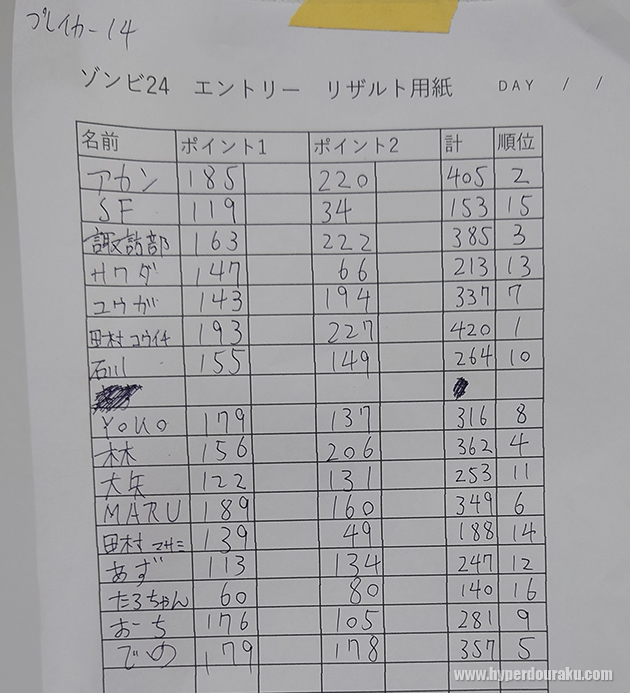 ブレイカー14
ゾンビ24 エントリー リザルト用紙 DAY / /
名前 ポイント1 ポイント2 計 順位
アカン 185 220 405 2
SF 119 34 153 15
諏訪部 163 222 385 3
サワダ 147 66 213 13
ユウガ 143 194 337 7
田村コウイチ 193 227 420 1
石川 155 149 264 10
YOKO 179 137 316 8
林 156 206 362 4
大矢 122 131 253 11
MARU 189 160 349 6
田村マサミ 139 49 188 14
あず 113 134 247 12
たろちゃん 60 80 140 16
おーち 176 105 281 9
でめ 179 178 357 5
www.hyperdouraku.com